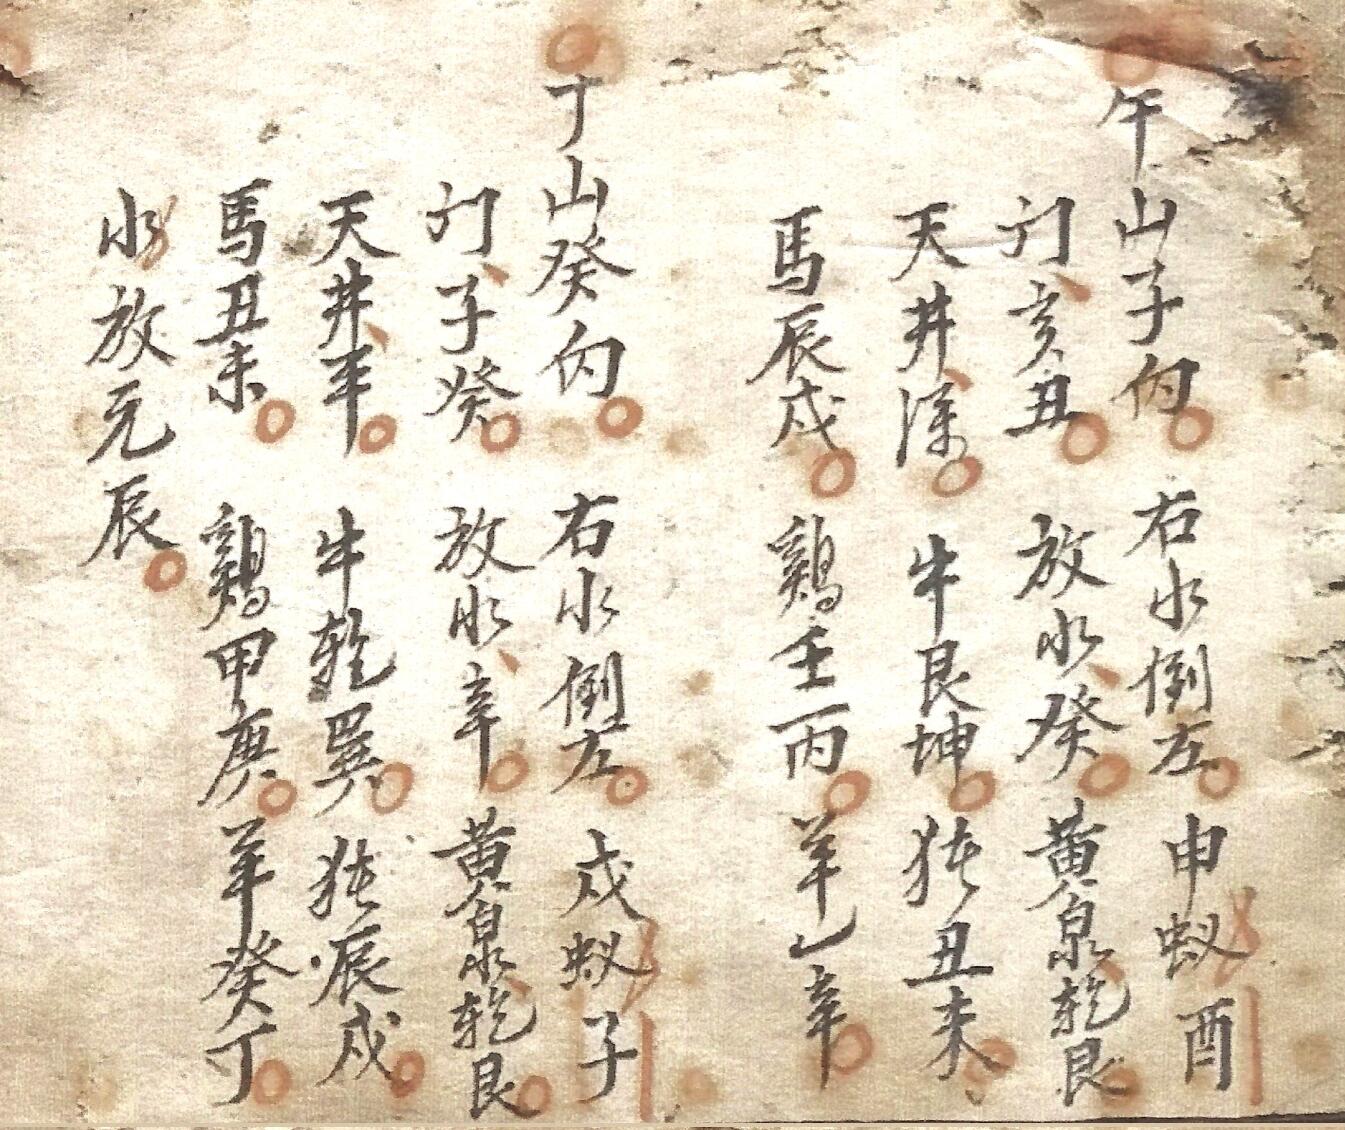 午山子向 右水倒左 申蚁酉
门亥丑 放水癸 黄泉乾艮
天井深 牛艮坤 㹠丑未
馬辰戍 鷄壬丙 羊乙辛
丁山癸向 右水倒左 戍蚁子
门子癸 放水辛 黄泉乾艮
天井半 牛乾巽 㹠辰戍
馬丑未 鷄甲庚 羊癸丁
水放元辰